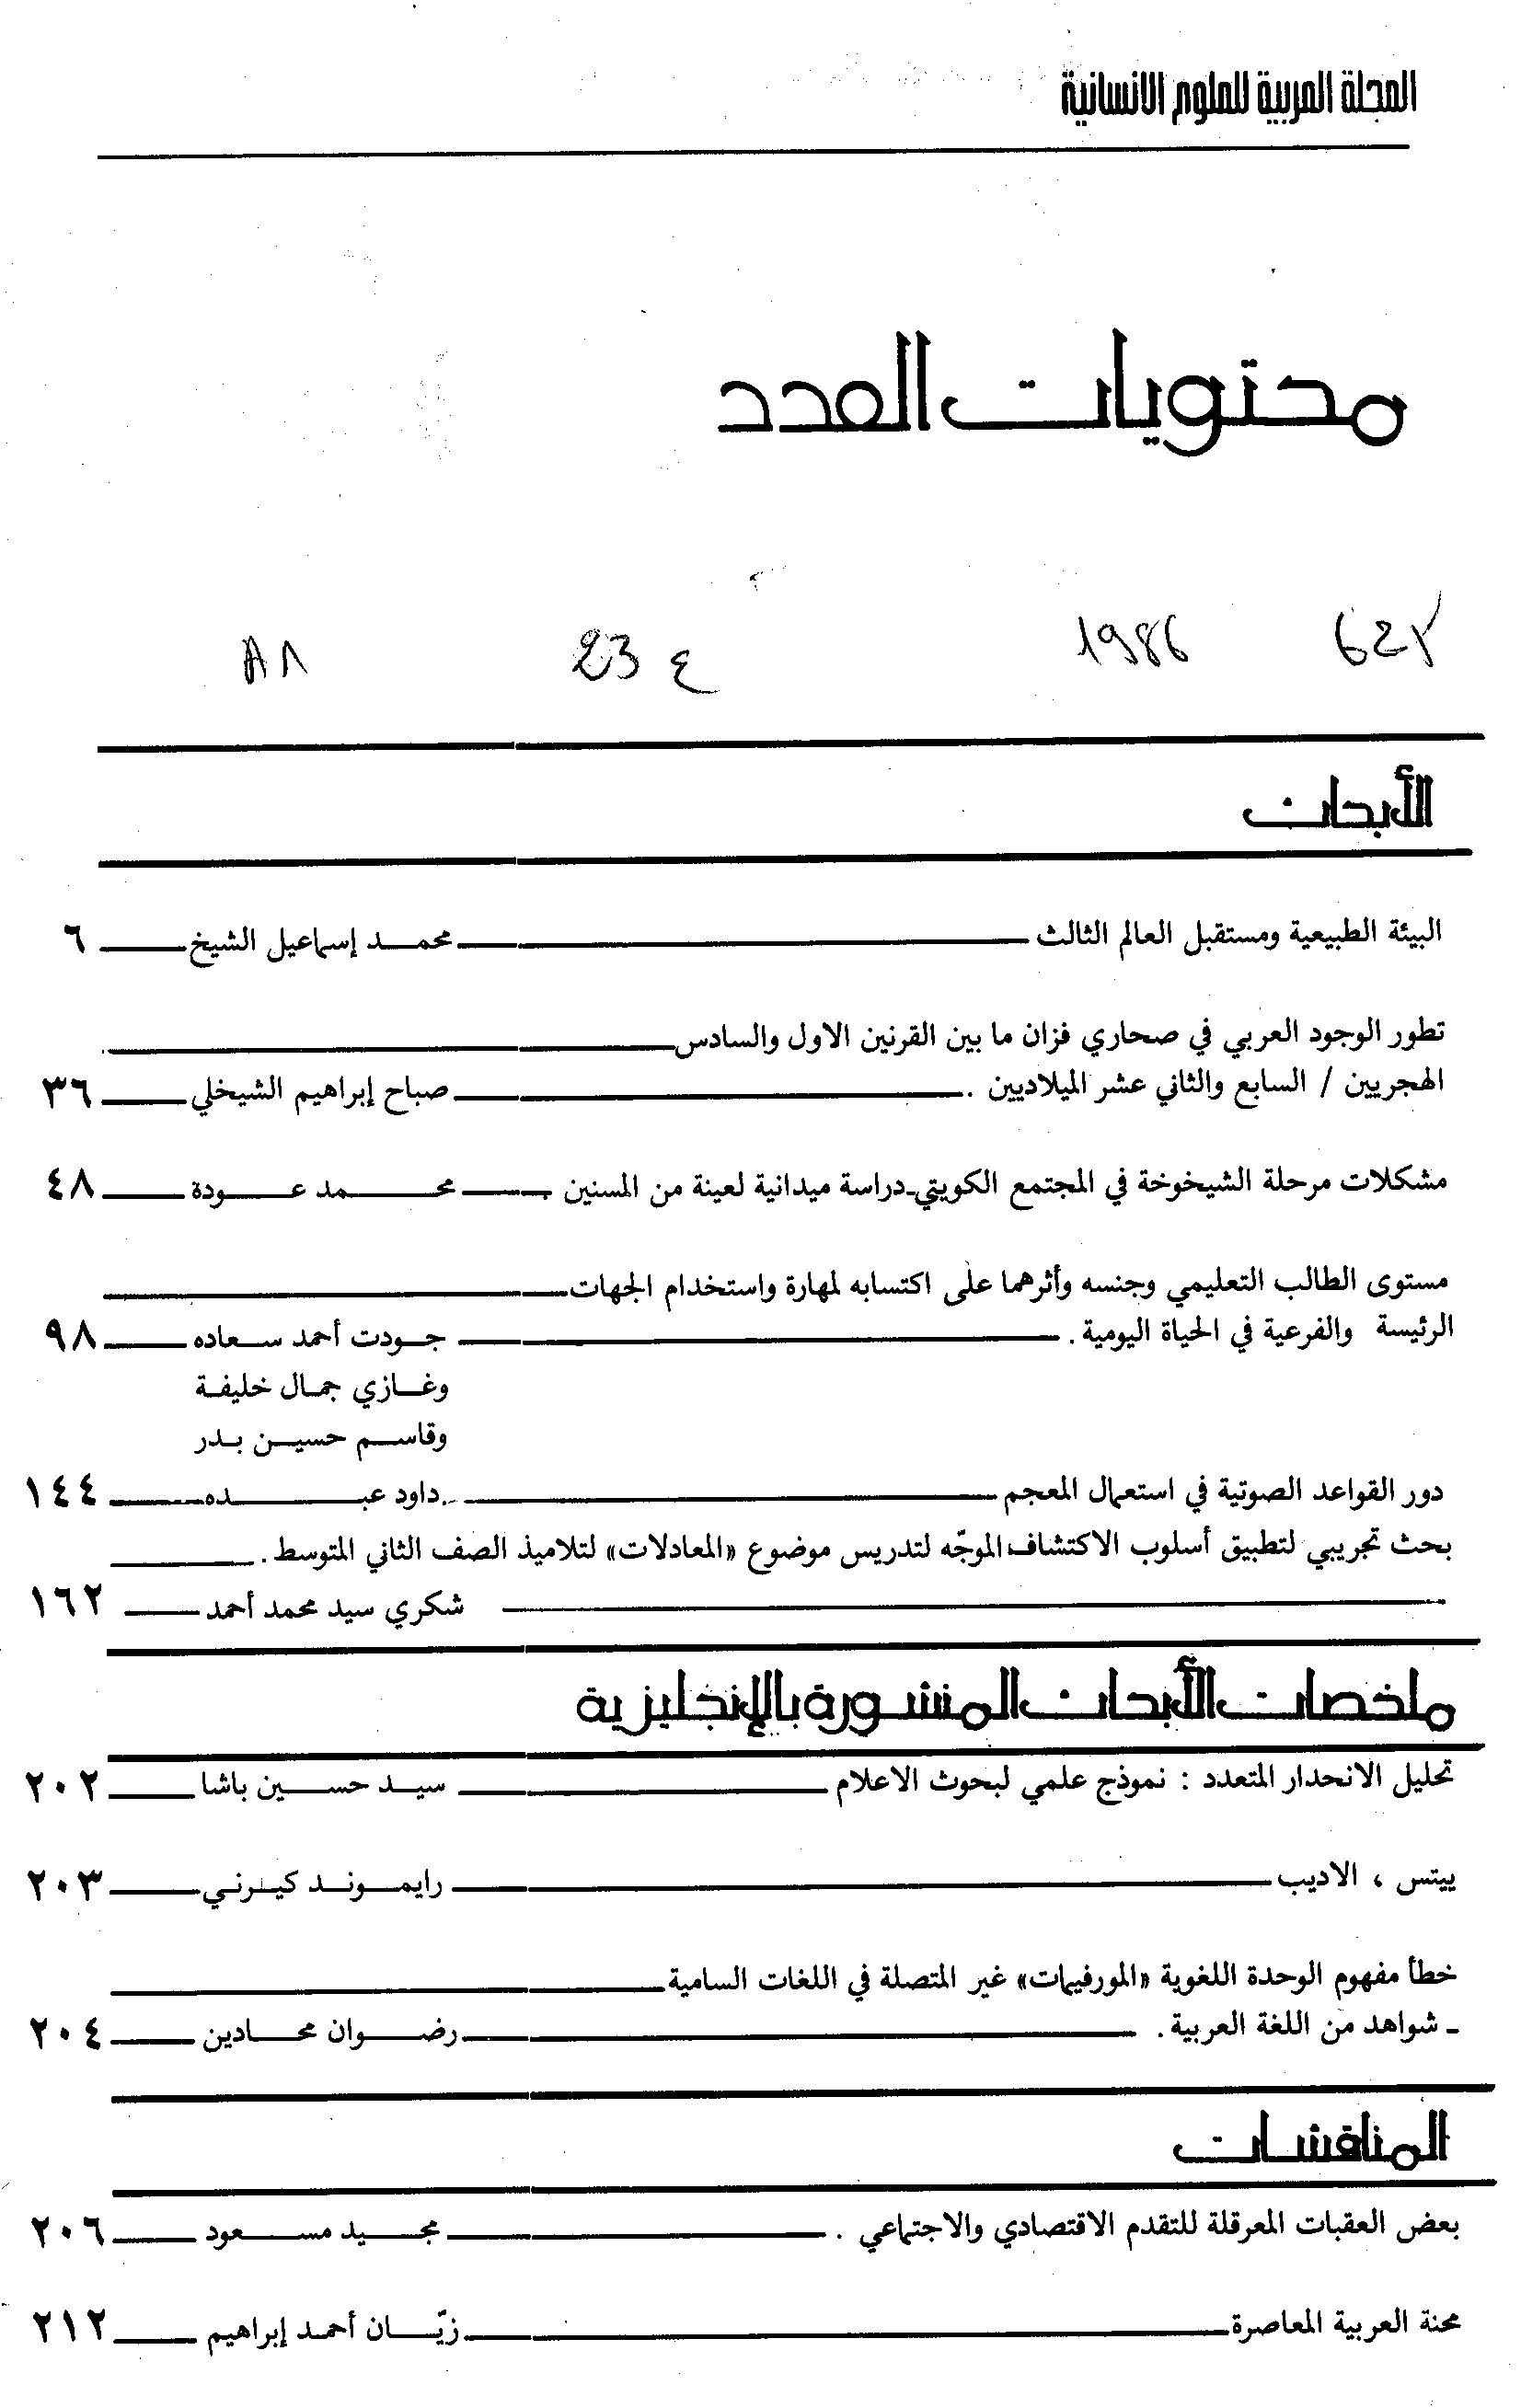 المجلة العربية للعلوم الانسانية
محتويات العدد
1986
23 ع
الأبحاث
البيئة الطبيعية ومستقبل العالم الثالث محمد إسماعيل الشيخ ٦
تطور الوجود العربي في صحاري فزان ما بين القرنين الاول والسادس
الهجريين / السابع والثاني عشر الميلاديين . صباح إبراهيم الشيخلي ٣٦
مشكلات مرحلة الشيخوخة في المجتمع الكويتي-دراسة ميدانية لعينة من المسنين محمد عودة ٤٨
مستوى الطالب التعليمي وجنسه وأثرهما على اكتسابه لمهارة واستخدام الجهات
الرئيسة والفرعية في الحياة اليومية . جودت أحمد سعاده ٩٨
وغازي جمال خليفة
وقاسم حسين بدر
دور القواعد الصوتية في استعمال المعجم داود عبده ١٤٤
بحث تجريبي لتطبيق أسلوب الاكتشاف الموجّه لتدريس موضوع «المعادلات» لتلاميذ الصف الثاني المتوسط .
شكري سيد محمد أحمد ١٦٢
ملخصات الأبحاث المنشورة بالإنجليزية
تحليل الانحدار المتعدد : نموذج علمي لبحوث الاعلام سيد حسين باشا ٢٠٢
ييتس ، الاديب رايموند كيرني ٢٠٣
خطأ مفهوم الوحدة اللغوية «المورفيمات» غير المتصلة في اللغات السامية
ـ شواهد من اللغة العربية . رضوان محادين ٢٠٤
المناقشات
بعض العقبات المعرقلة للتقدم الاقتصادي والاجتماعي . مجيد مسعود ٢٠٦
محنة العربية المعاصرة زيّان أحمد إبراهيم ٢١٢